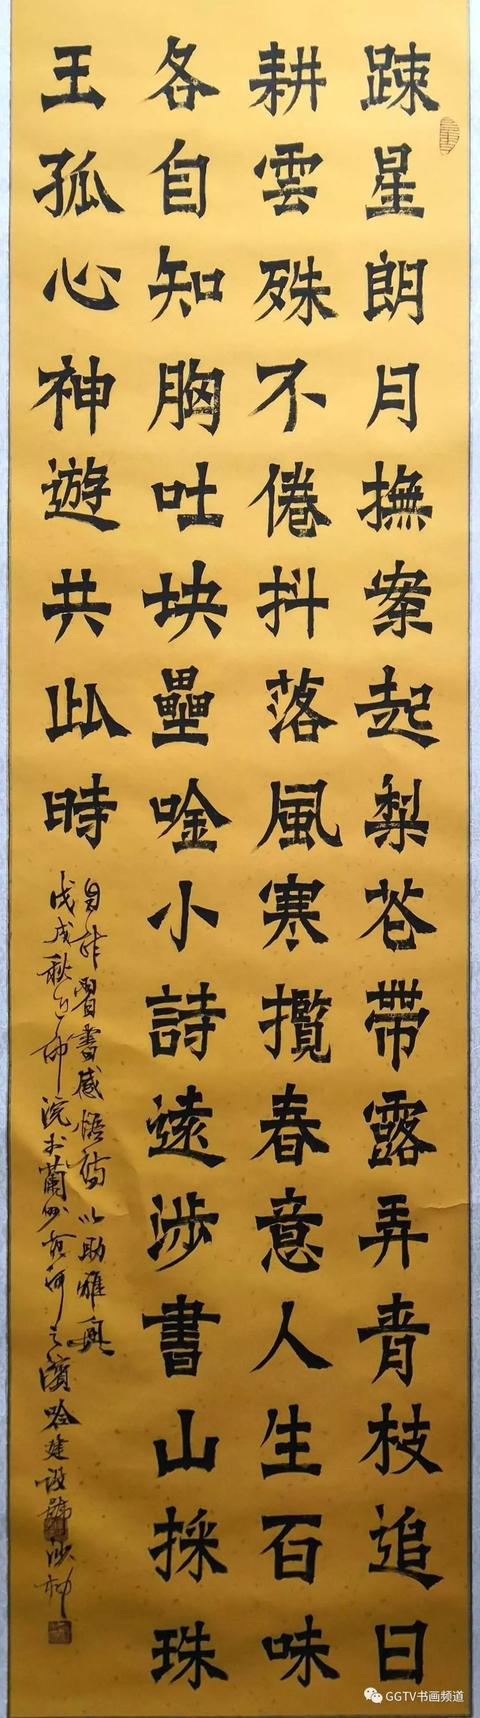 踈星朗月撫案起梨花帶露弄青枝追日
耕雲殊不倦抖落風寒攬春意人生百味
各自知胸吐块壘唫小詩遠涉書山採珠
王孤心神遊共此時
自作習書感悟詩以助雅興
戊戌秋師院蘭州黄河之濱哈建設號沙柳
GGTV书画频道